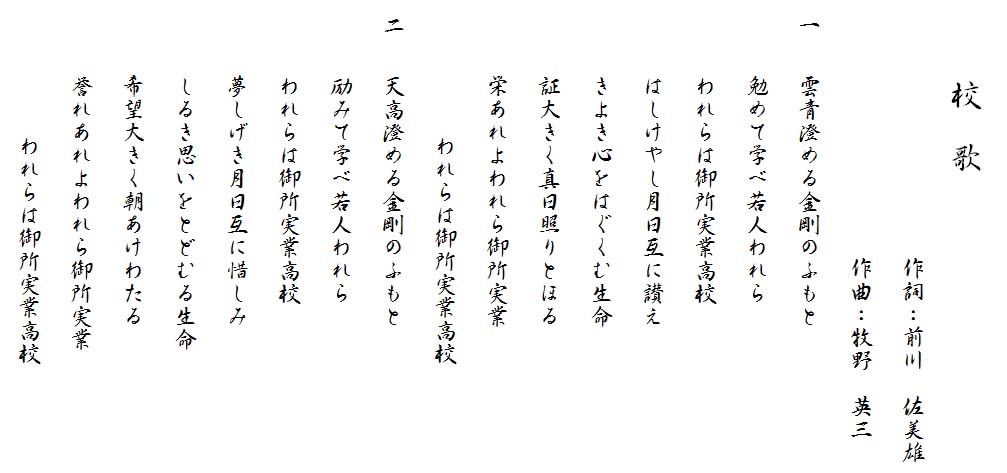 校　歌
作詞：前川　佐美雄
作曲：牧野　英三
一　雲青澄める金剛のふもと
勉めて学べ若人われら
われらは御所実業高校
はしけやし月日互に讃え
きよき心をはぐくむ生命
証大きく真日照りとほる
栄あれよわれら御所実業
われらは御所実業高校
二　天高澄める金剛のふもと
励みて学べ若人われら
われらは御所実業高校
夢しげき月日互に惜しみ
しるき思いをとどむる生命
希望大きく朝あけわたる
誉れあれよわれら御所実業
われらは御所実業高校